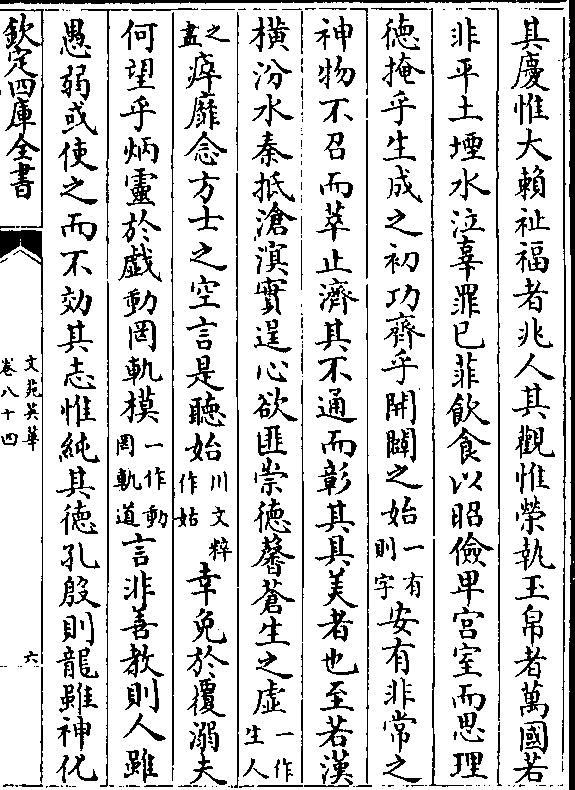 其慶惟大賴祉福者兆人其觀惟榮執玉帛者萬國若
非平土堙水泣辜罪已菲飲食以昭儉卑宫室而思理
德掩乎生成之初功齊乎開闢之始一有則字安有非常之
神物不召而萃止濟其不通而彰其具美者也至若漢
横汾水秦抵滄溟實逞心欲匪崇德馨蒼生之虚一作生人
之盡瘁靡念方士之空言是聽始川文粹作姑幸免於覆溺夫
何望乎炳靈於戲動罔軌模一作動罔軌道言非善教則人雖
愚弱或使之而不効其志惟純其德孔殷則龍雖神化
欽定四庫全書
文苑英華
卷八十四
六